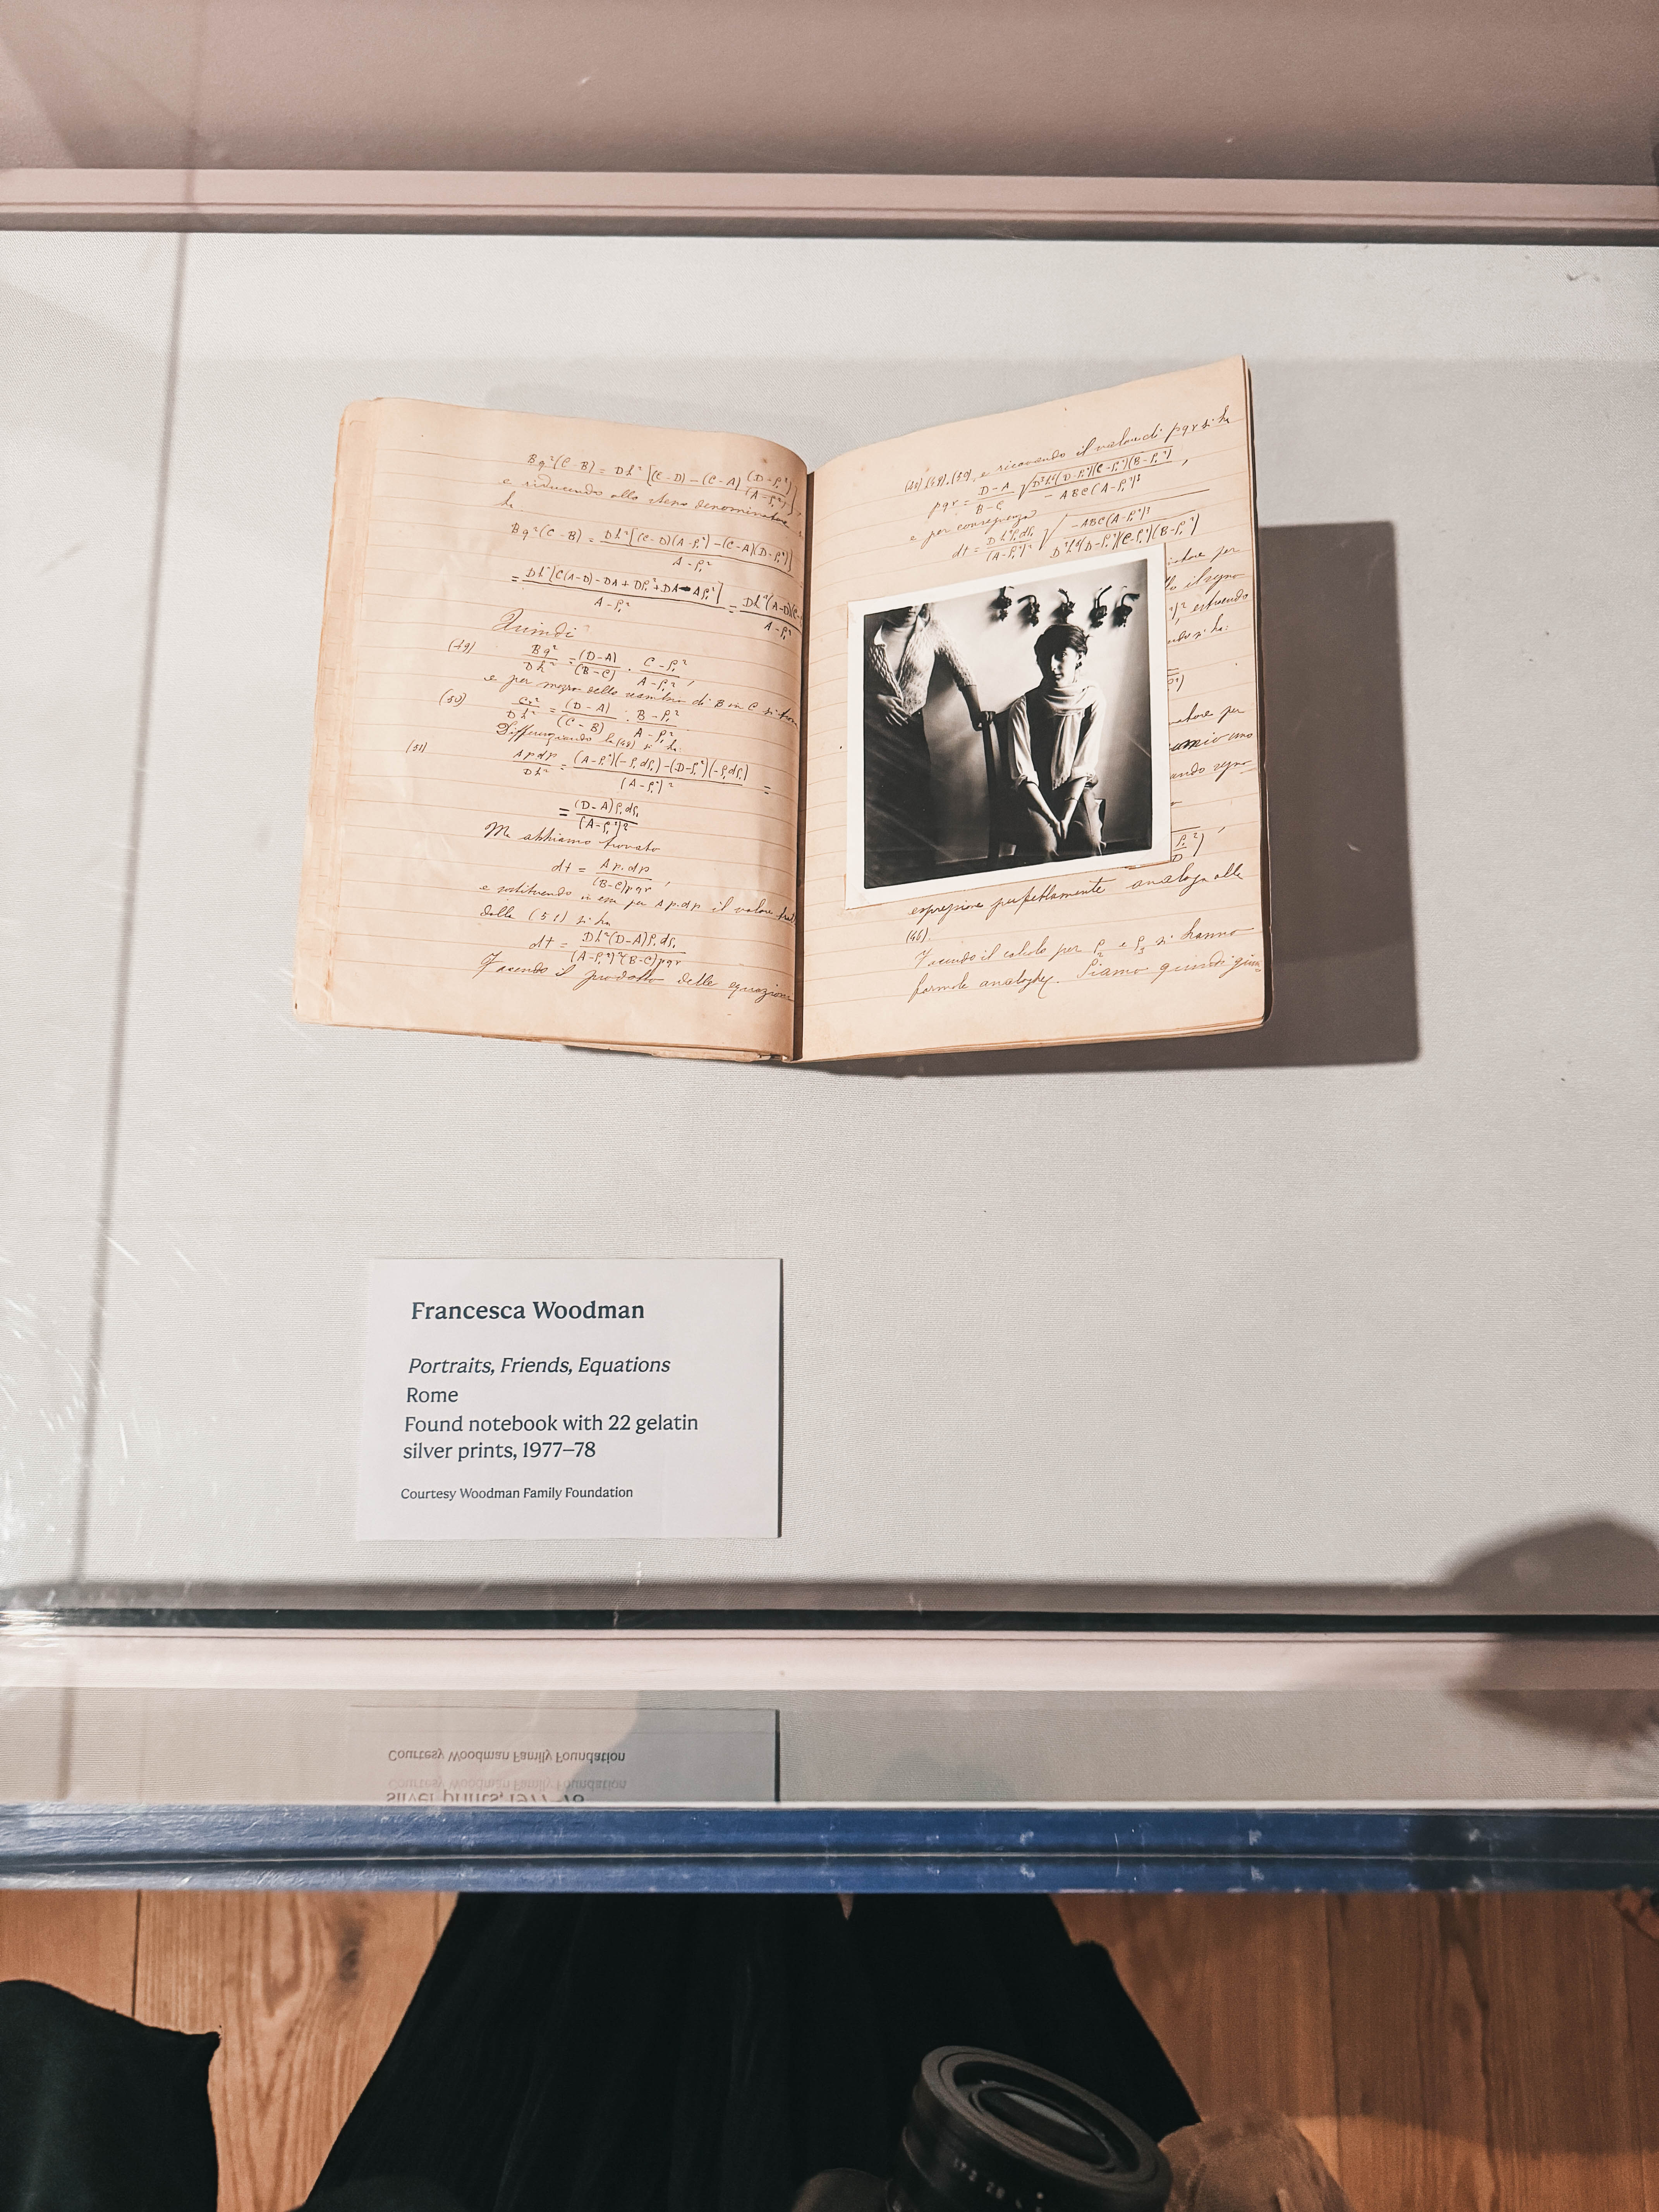 Bq²(C-B) = Dh² [(C-D) - (C-A) (D-ρ₁²)/(A-ρ₁²)]
e riducendo allo stesso denominatore
ha
Bq²(C-B) = Dh²[(C-D)(A-ρ₁²) - (C-A)(D-ρ₁²)] / A-ρ₁²
= Dh²[C(A-D) - DA + Dρ₁² + DA - Aρ₁²] / A-ρ₁² = Dh²(A-D)(C- / A-ρ₁²
Quindi
(49) Bq²/Dh² = (D-A)/(B-C) · C-ρ₁²/A-ρ₁² ,
e per mezzo dello scambio di B in C si
(50) Cr²/Dh² = (D-A)/(C-B) : B-ρ₁²/A-ρ₁²
Differenziando la (48) si ha:
(51) Apdp/Dh² = (A-ρ₁²)(-ρ₁dρ₁) - (D-ρ₁²)(-ρ₁dρ₁) / (A-ρ₁²)² =
= (D-A)ρ₁dρ₁ / (A-ρ₁²)²
Ma abbiamo trovato
dt = Ap.dp / (B-C)pqr ,
e sostituendo in essa per Ap.dp il valore
dalla (51) si ha
dt = Dh²(D-A)ρ₁dρ₁ / (A-ρ₁²)²(B-C)pqr
Facendo il prodotto delle equazioni
e ricavando il valore di pqr si ha
pqr = D-A / B-C √ D³h⁶(D-ρ₁²)(C-ρ₁²)(B-ρ₁²) / -ABC(A-ρ₁²)³ ,
e per conseguenza
dt = Dh²ρ₁dρ₁ / (A-ρ₁²)² √ -ABC(A-ρ₁²)³ / D³h⁶(D-ρ₁²)(C-ρ₁²)(B-ρ₁²)
per
il segno
si ha:
per
segno
espressione perfettamente analoga alla
(46).
Facendo il calcolo per ρ₂ e ρ₃ si hanno
formole analoghe. Siamo quindi
Francesca Woodman
Portraits, Friends, Equations
Rome
Found notebook with 22 gelatin
silver prints, 1977–78
Courtesy Woodman Family Foundation
Courtesy Woodman Family Foundation
Courtesy Woodman Family Foundation
silver prints, 1977–78